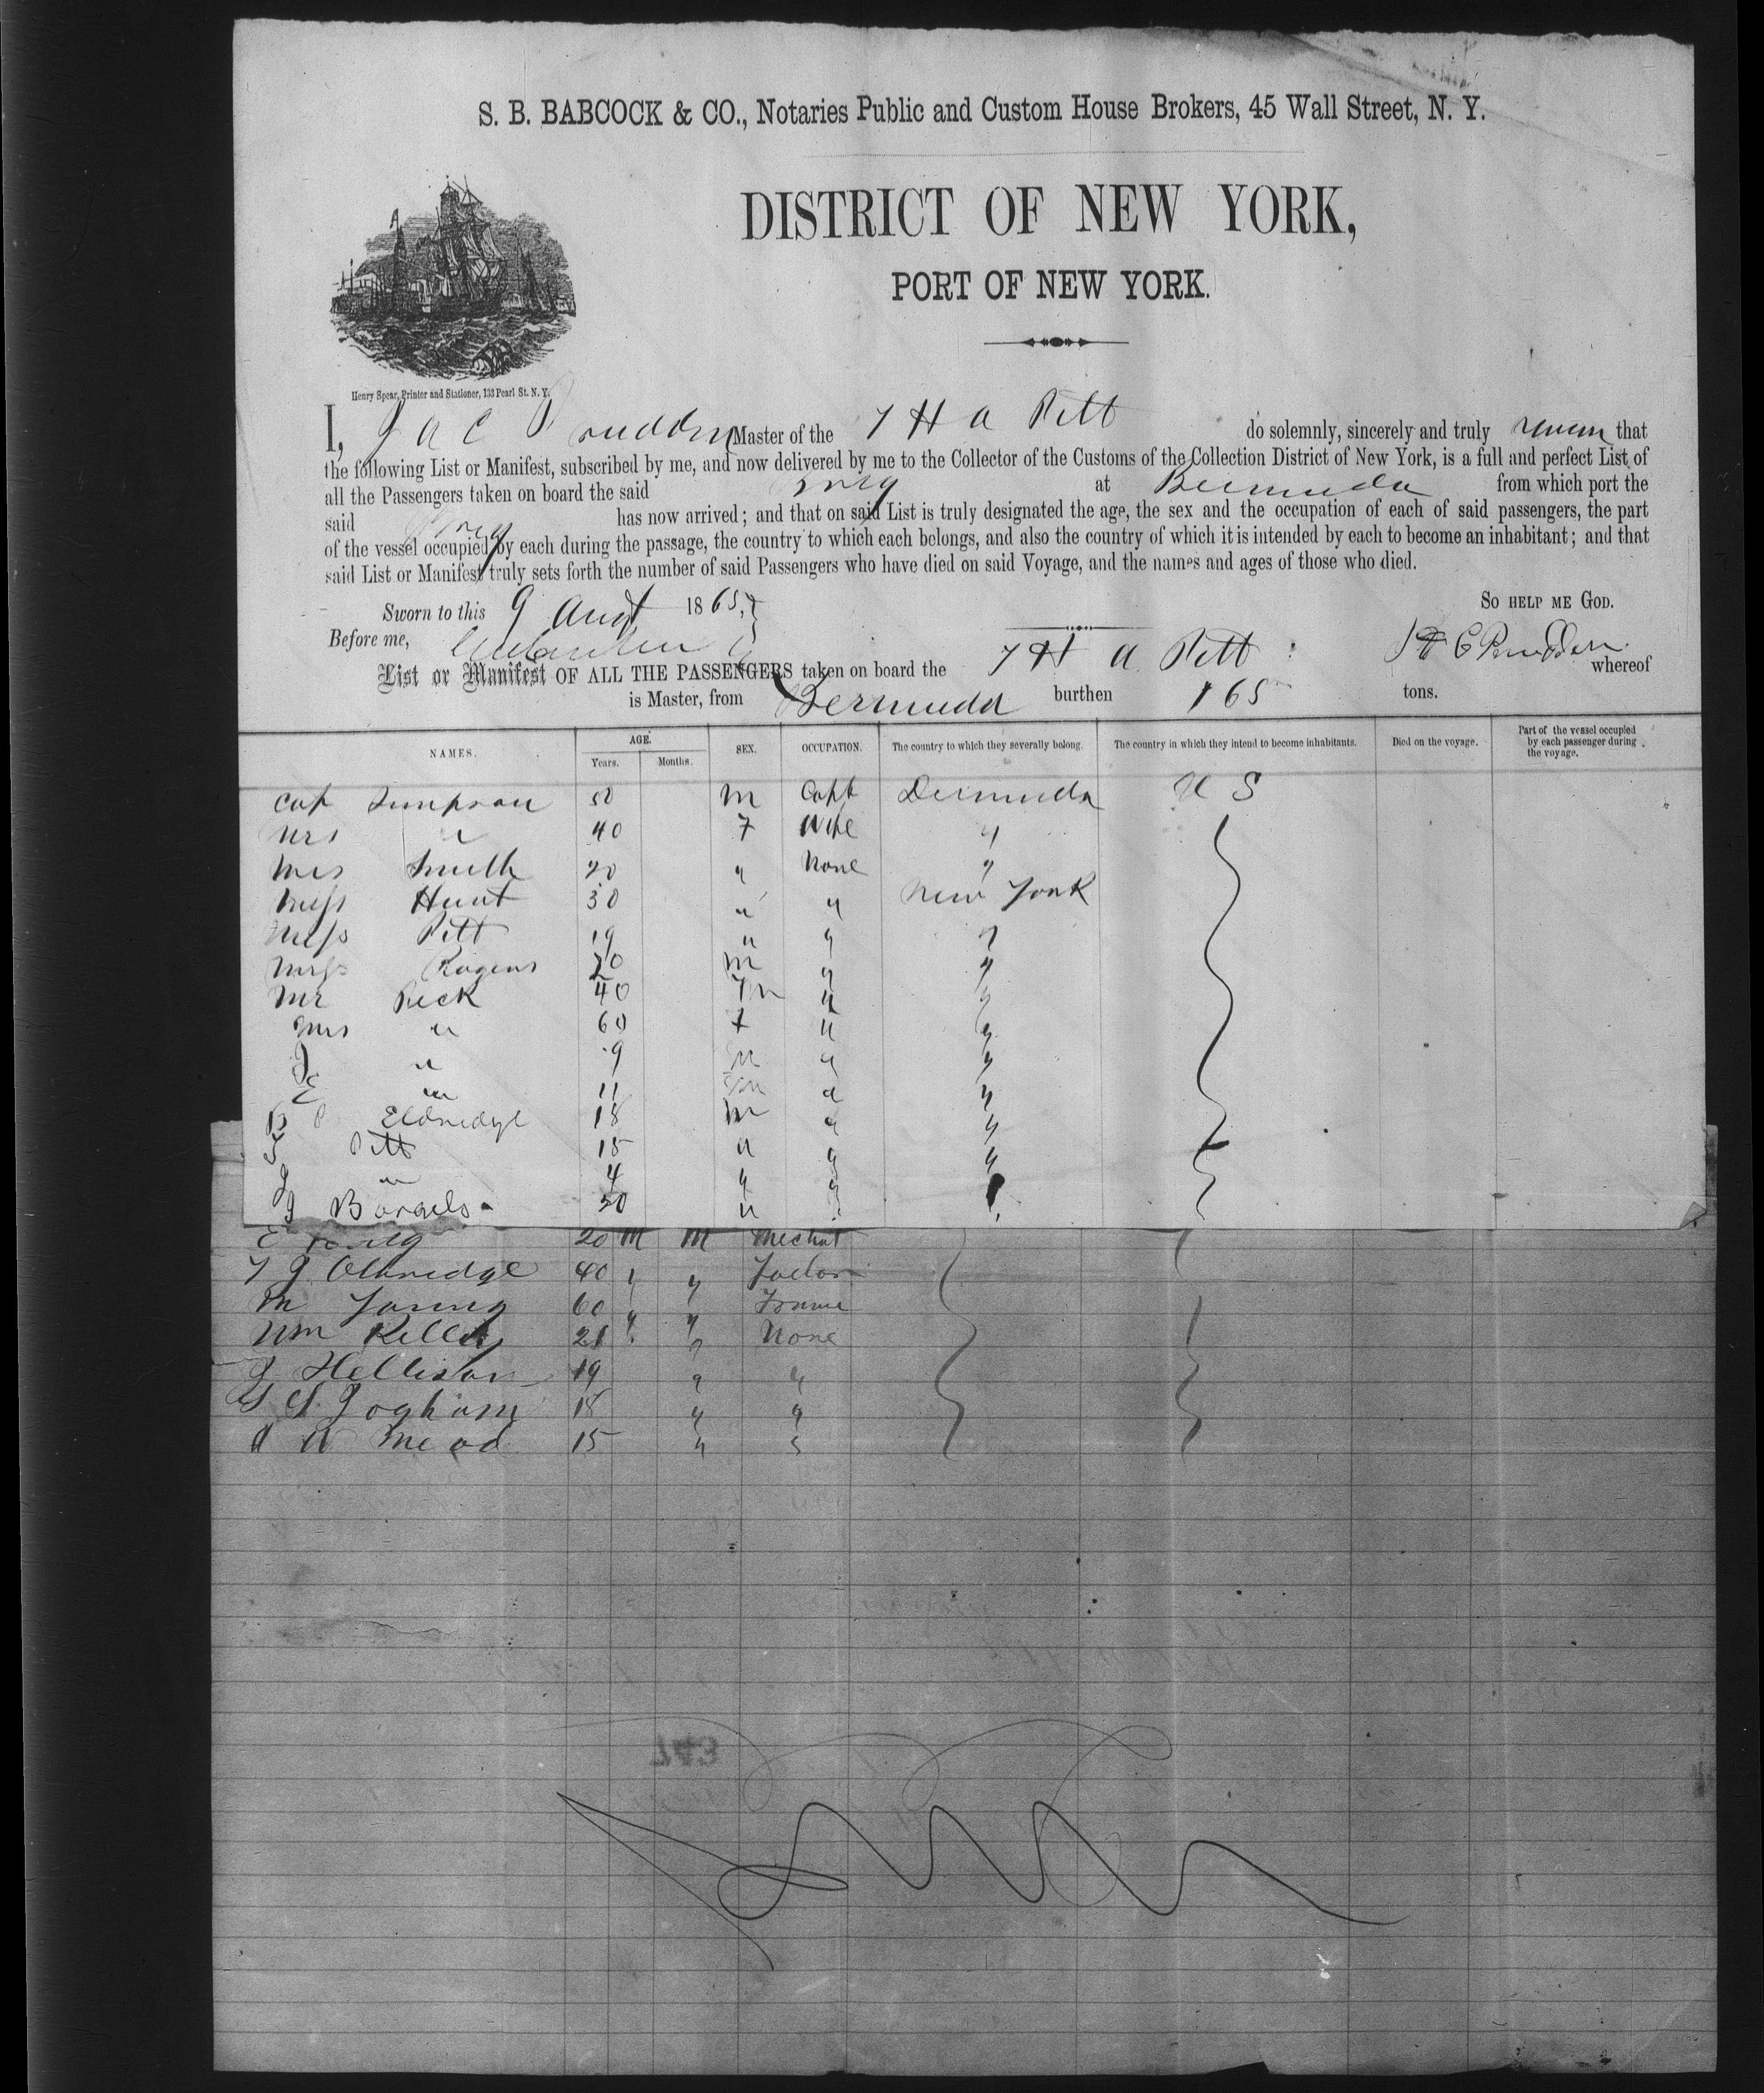 S. B. BABCOCK & CO., Notaries Public and Custom House Brokers, 45 Wall Street, N. Y.
DISTRICT OF NEW YORK,
PORT OF NEW YORK.
Henry Spear, Printer and Stationer, 133 Pearl St. N. Y.
I, Prudden Master of the T H A Pitt do solemnly, sincerely and truly that
the following List or Manifest, subscribed by me, and now delivered by me to the Collector of the Customs of the Collection District of New York, is a full and perfect List of
all the Passengers taken on board the said Brig at Bermuda from which port the
said Brig has now arrived; and that on said List is truly designated the age, the sex and the occupation of each of said passengers, the part
of the vessel occupied by each during the passage, the country to which each belongs, and also the country of which it is intended by each to become an inhabitant; and that
said List or Manifest truly sets forth the number of said Passengers who have died on said Voyage, and the names and ages of those who died.
Sworn to this 9 Augt 1865, SO HELP ME GOD.
Before me,
List or Manifest OF ALL THE PASSENGERS taken on board the T H A Pitt whereof
is Master, from Bermuda burthen 165 tons.
NAMES. AGE. Years. Months. SEX. OCCUPATION. The country to which they severally belong. The country in which they intend to become inhabitants. Died on the voyage. Part of the vessel occupied by each passenger during the voyage.
Cap Simpson 50 M Capt Bermuda U S
Mrs " 40 F Wife "
Mrs Smith 20 " None "
Miss Hunt 30 " " New York
Miss Pitt 19 " " "
Miss Rogers 20 M " "
Mr Peck 40 M " "
Mrs " 60 F " "
J " 9 M " "
E " 11 M " "
Eldridge 18 M " "
Pitt 15 " " "
J " 4 " "
J Borgels 50 " "
E 20 M M Mechat
T J Oldridge 40 " "
M Young 60 " "
Wm Kelly 21 " " None
J Hellison 19 " "
18 " "
W Mead 15 " "
743